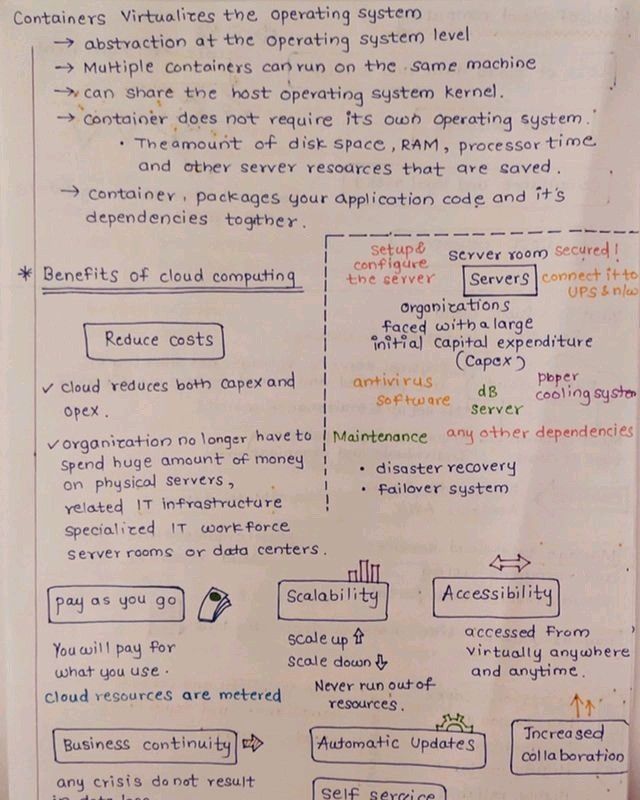 Containers Virtualizes the operating system
→ abstraction at the operating system level
→ Multiple containers can run on the same machine
→ can share the host operating system kernel.
→ container does not require its own operating system.
• The amount of disk space, RAM, processor time
and other server resources that are saved.
→ container, packages your application code and it's
dependencies together.
* Benefits of cloud computing
Reduce costs
✓ cloud reduces both capex and
opex.
✓ organization no longer have to
spend huge amount of money
on physical servers,
related IT infrastructure
specialized IT workforce
server rooms or data centers.
setup &
configure
the server
server room
secured!
Servers
connect it to
UPS & n/w
organizations
faced with a large
initial capital expenditure
(Capex)
antivirus
software
dB
server
proper
cooling system
Maintenance
any other dependencies
• disaster recovery
• failover system
pay as you go
You will pay for
what you use.
cloud resources are metered
Scalability
scale up ⇧
scale down ⇩
Never run out of
resources.
Accessibility
accessed from
virtually anywhere
and anytime.
Business continuity
any crisis do not result
Automatic Updates
Increased
collaboration
self service